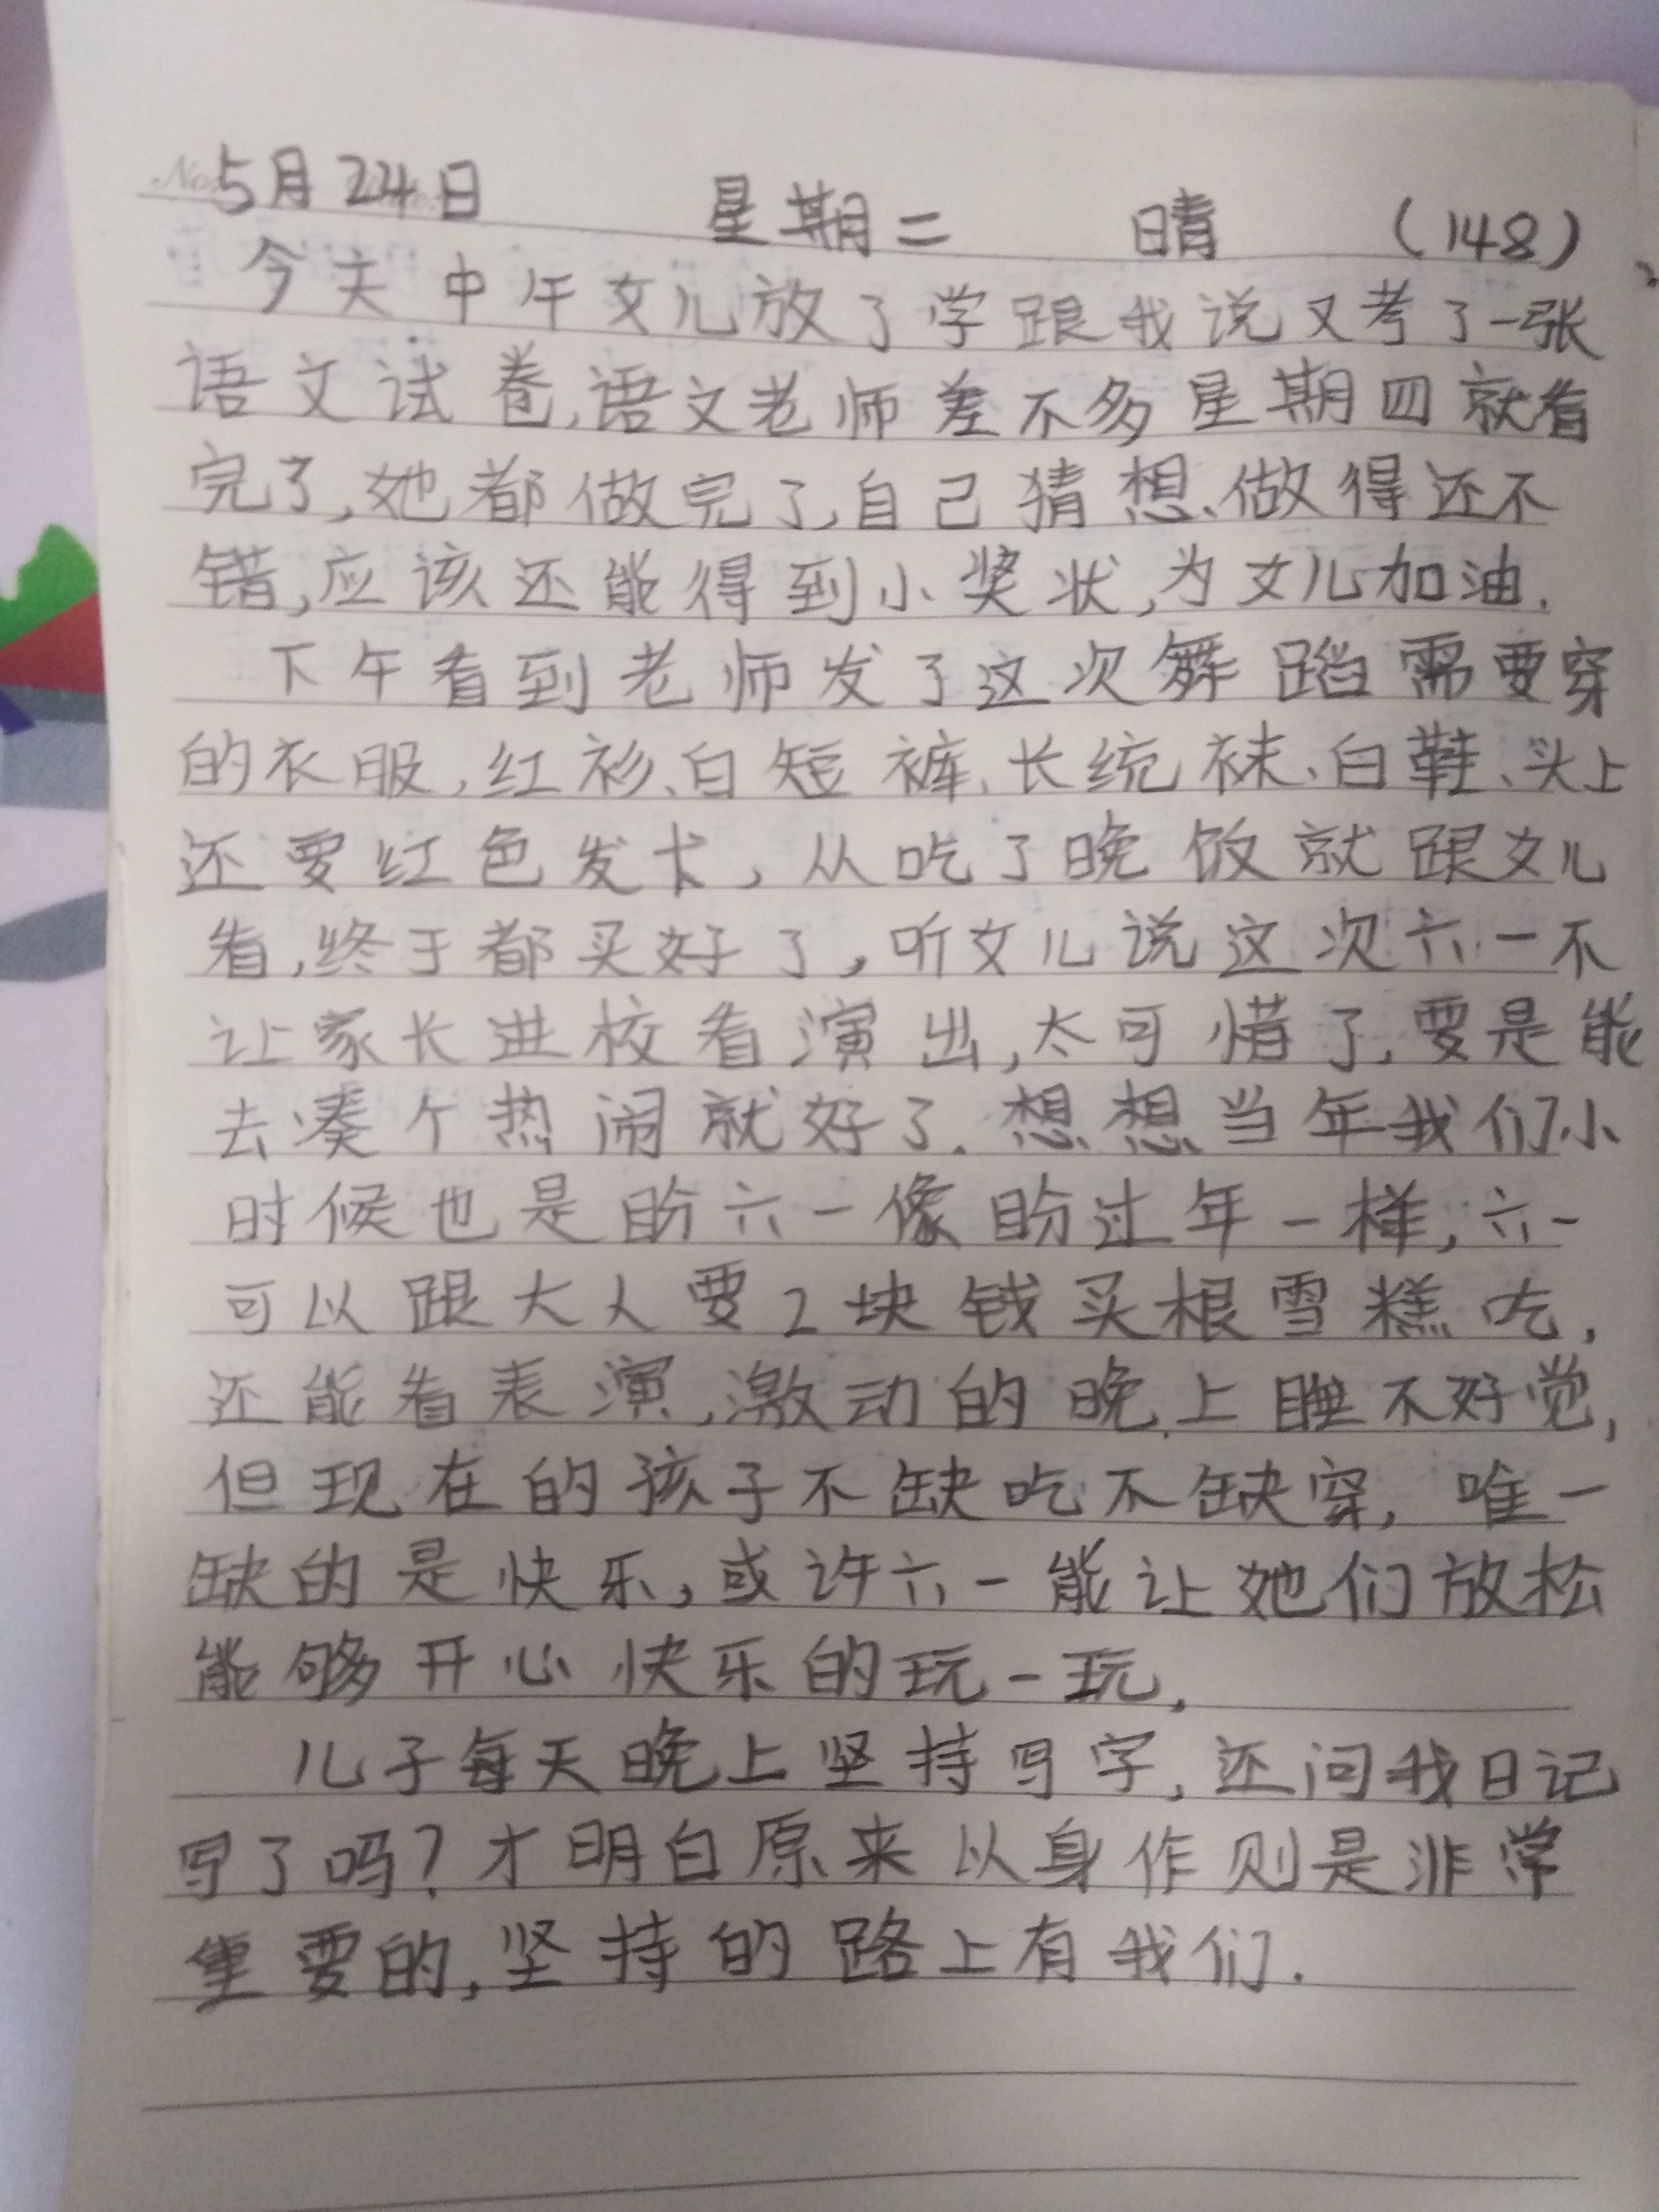 5月24日 星期二 晴 (148)
今天中午女儿放了学跟我说又考了一张
语文试卷,语文老师差不多星期四就看
完了,她都做完了,自己猜想、做得还不
错,应该还能得到小奖状,为女儿加油.
下午看到老师发了这次舞蹈需要穿
的衣服,红衫、白短裤、长统袜、白鞋、头上
还要红色发卡,从吃了晚饭就跟女儿
看,终于都买好了,听女儿说这次六一不
让家长进校看演出,太可惜了,要是能
去凑个热闹就好了.想想当年我们小
时候也是盼六一像盼过年一样,六一
可以跟大人要2块钱买根雪糕吃,
还能看表演,激动的晚上睡不好觉,
但现在的孩子不缺吃不缺穿,唯一
缺的是快乐,或许六一能让她们放松
能够开心快乐的玩一玩.
儿子每天晚上坚持写字,还问我日记
写了吗?才明白原来以身作则是非常
重要的,坚持的路上有我们.